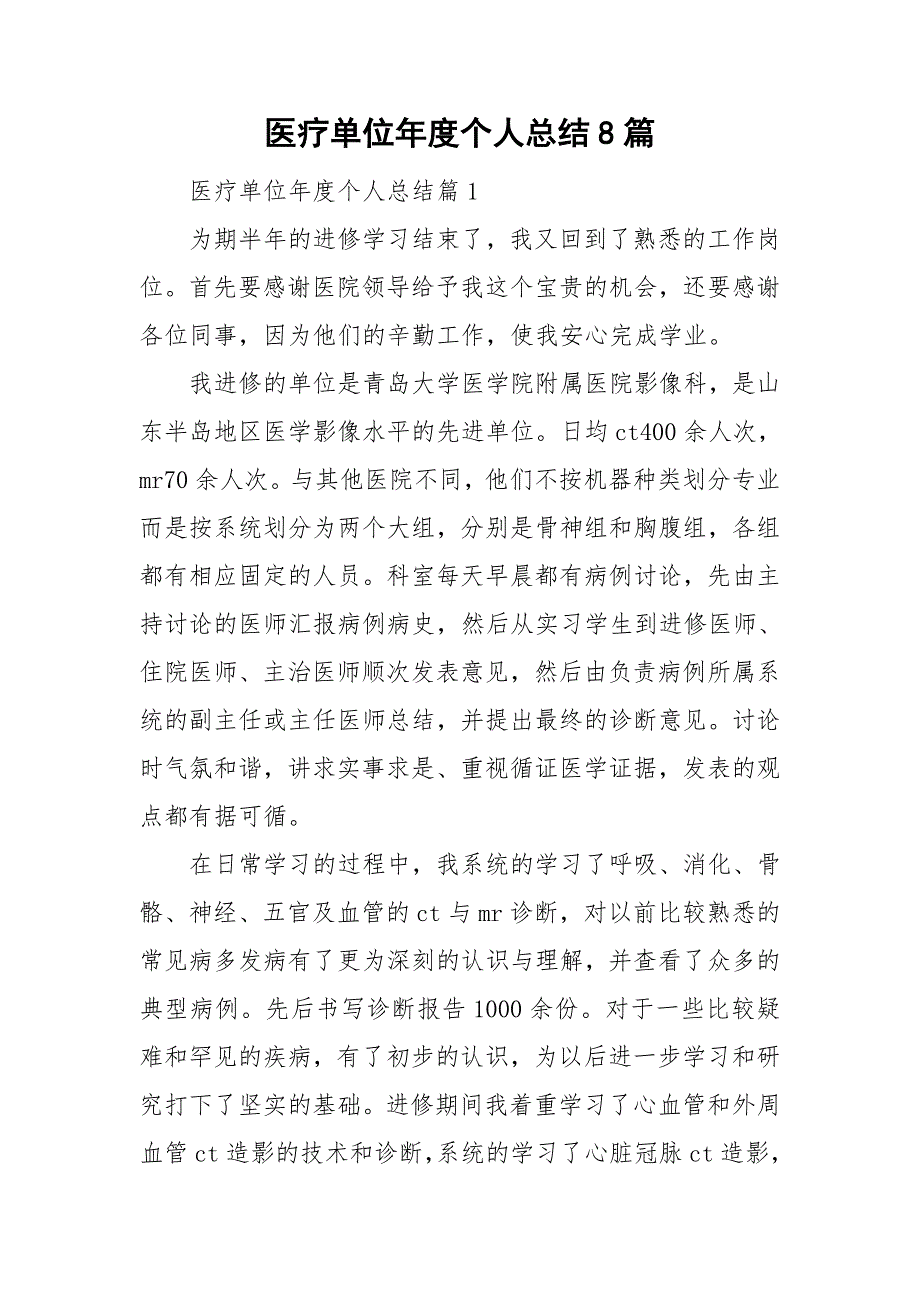 医疗单位年度个人总结8篇
医疗单位年度个人总结篇1
为期半年的进修学习结束了，我又回到了熟悉的工作岗
位。首先要感谢医院领导给予我这个宝贵的机会，还要感谢
各位同事，因为他们的辛勤工作，使我安心完成学业。
我进修的单位是青岛大学医学院附属医院影像科，是山
东半岛地区医学影像水平的先进单位。日均ct400余人次，
mr70余人次。与其他医院不同，他们不按机器种类划分专业
而是按系统划分为两个大组，分别是骨神组和胸腹组，各组
都有相应固定的人员。科室每天早晨都有病例讨论，先由主
持讨论的医师汇报病例病史，然后从实习学生到进修医师、
住院医师、主治医师顺次发表意见，然后由负责病例所属系
统的副主任或主任医师总结，并提出最终的诊断意见。讨论
时气氛和谐，讲求实事求是、重视循证医学证据，发表的观
点都有据可循。
在日常学习的过程中，我系统的学习了呼吸、消化、骨
骼、神经、五官及血管的ct与mr诊断，对以前比较熟悉的
常见病多发病有了更为深刻的认识与理解，并查看了众多的
典型病例。先后书写诊断报告1000余份。对于一些比较疑
难和罕见的疾病，有了初步的认识，为以后进一步学习和研
究打下了坚实的基础。进修期间我着重学习了心血管和外周
血管ct造影的技术和诊断，系统的学习了心脏冠脉ct造影，